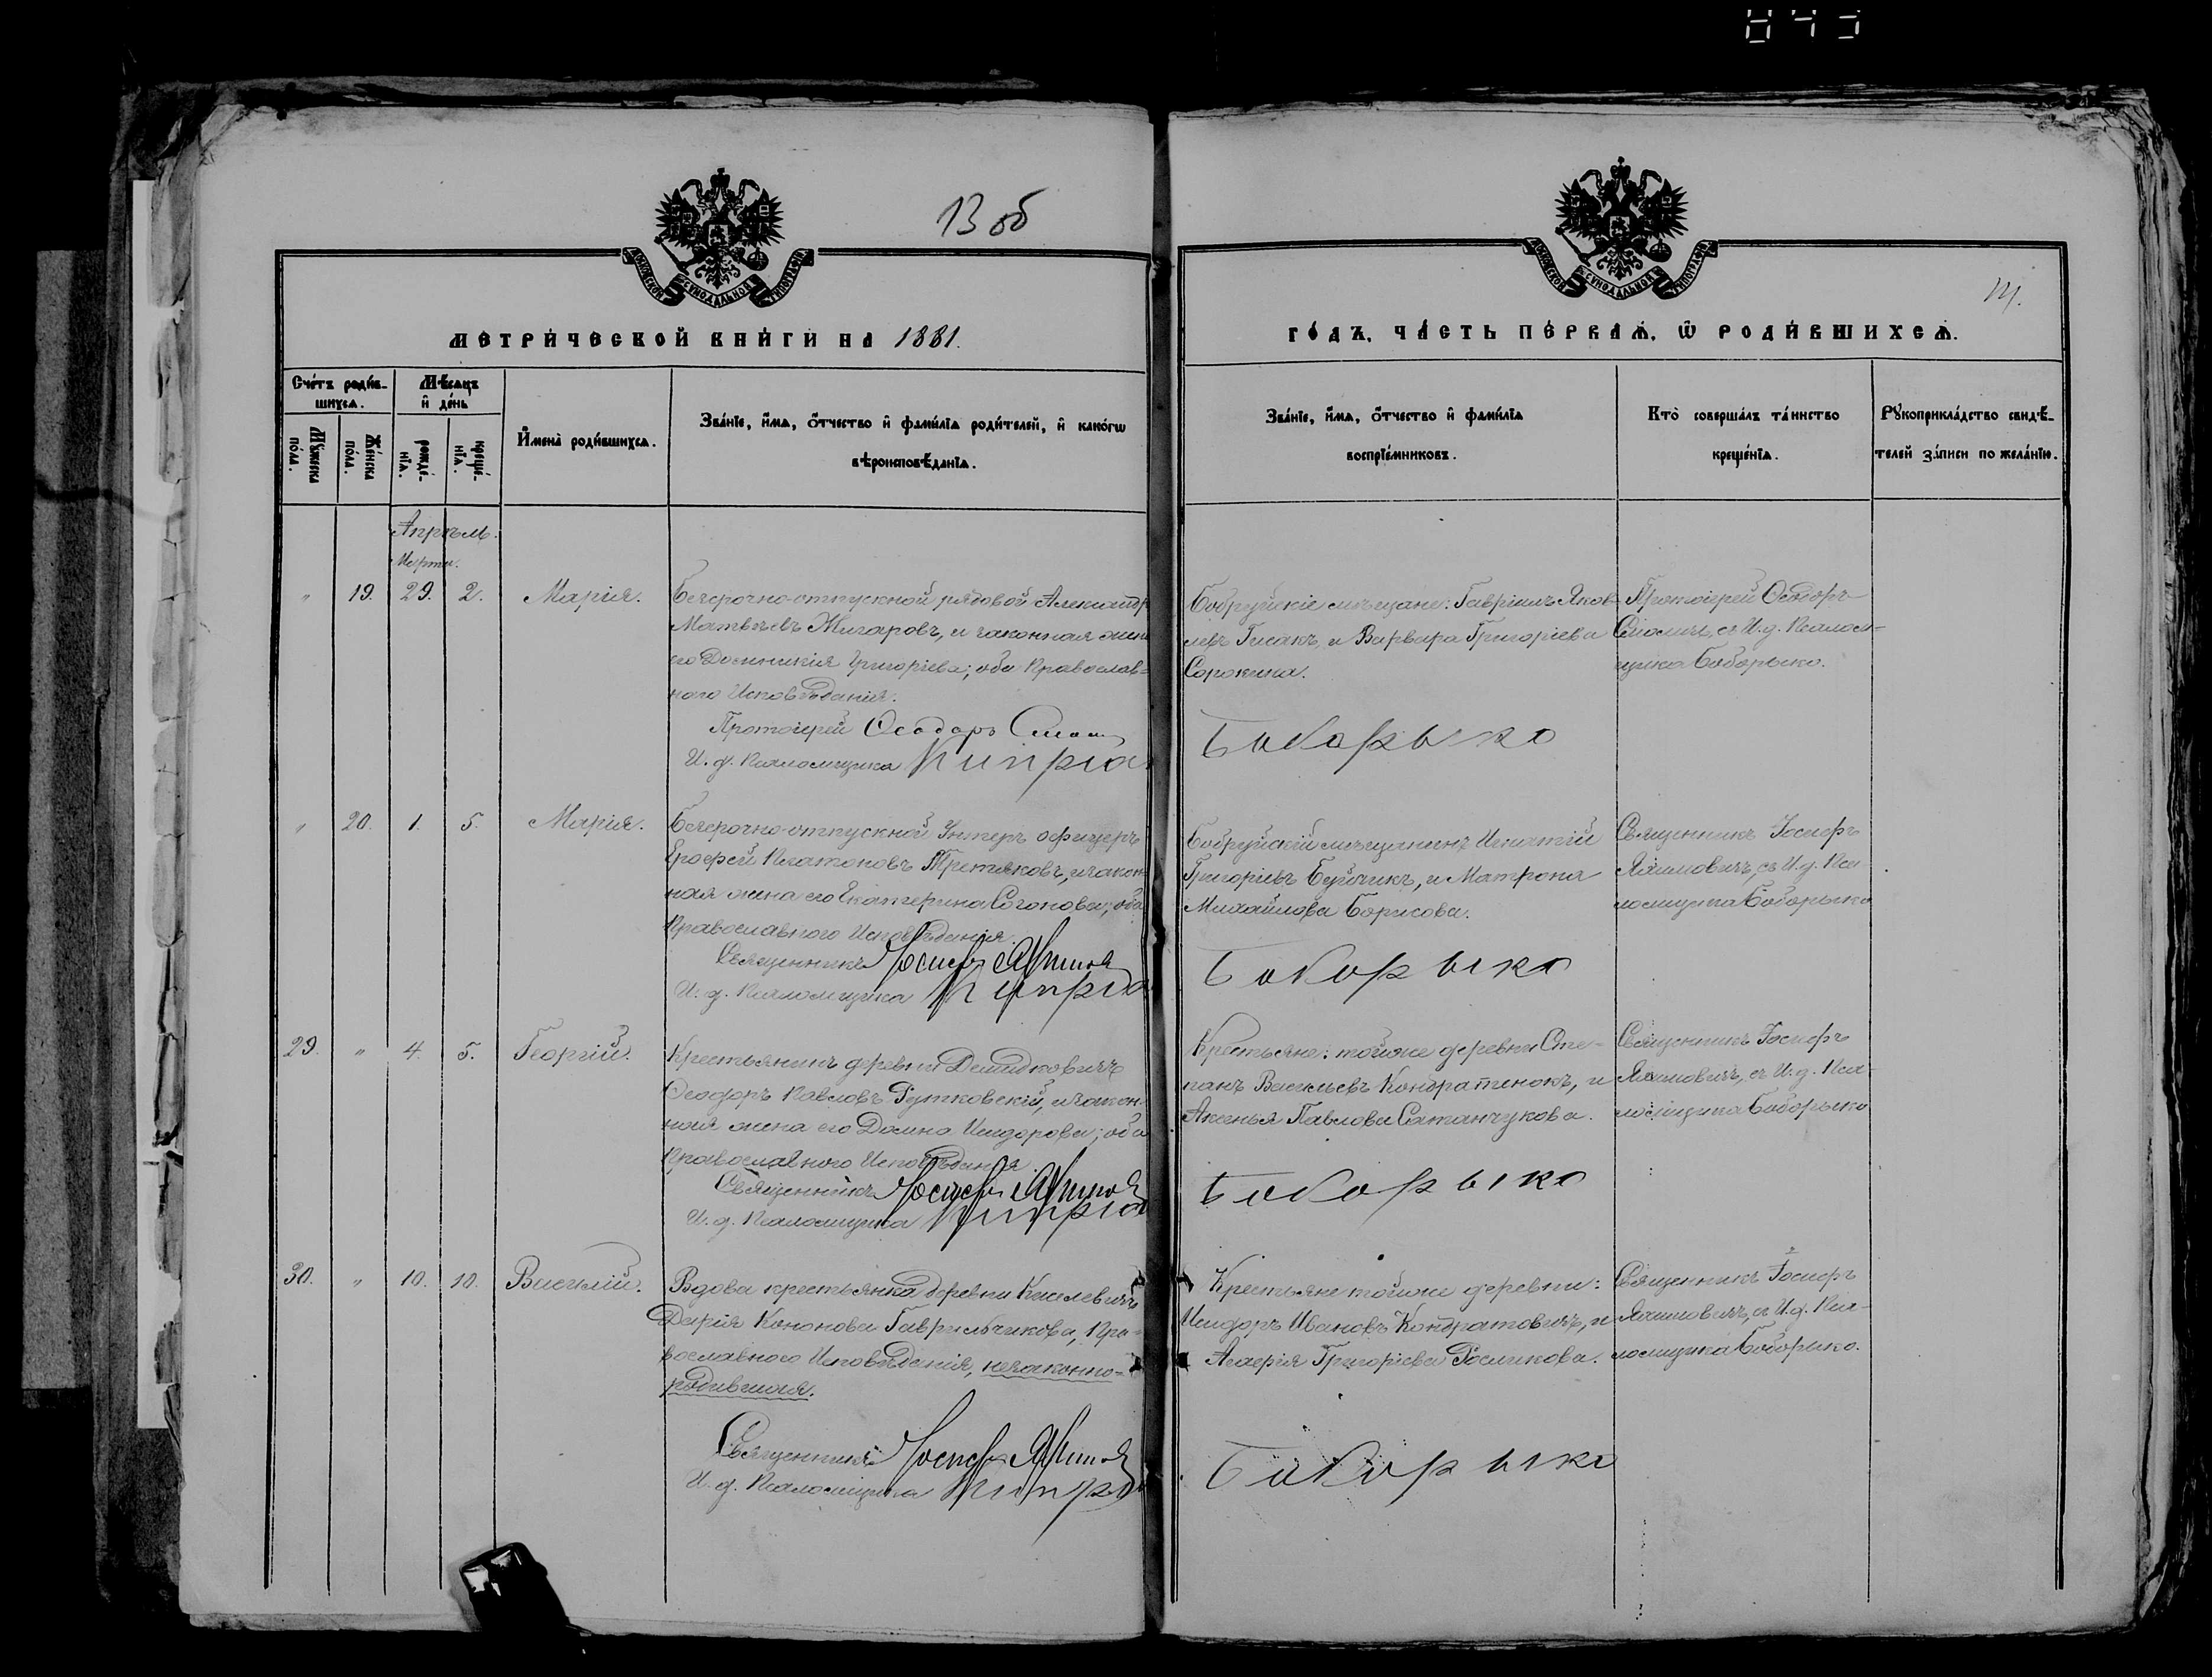 13 об
МОСКОВСКОЙ СѴНОДАЛЬНОЙ ТИПОГРАФІИ
МОСКОВСКОЙ СѴНОДАЛЬНОЙ ТИПОГРАФІИ
МЕТРИ́ЧЕСКОЙ КНИ́ГИ НА 1881.
ГО́ДЪ, ЧА́СТЬ ПЕ́РВАѦ, Ѿ РОДИ́ВШИХСѦ.
Сче́тъ роди́в-
шихсѧ.
Мѣ́сѧцъ
и҆ де́нь
Мꙋ́жеска
по́ла.
Же́нска
по́ла.
рожде́-
нїѧ.
креще́-
нїѧ.
И҆мена̀ роди́вшихсѧ.
Зва́нїе, и҆́мѧ, ѻ҆́тчество и҆ фами́лїѧ роди́телей, и҆ како́гѡ
вѣроисповѣ́данїѧ.
Зва́нїе, и҆́мѧ, ѻ҆́тчество и҆ фами́лїѧ
воспрїе́мниковъ.
Кто̀ соверша́лъ та́инство
креще́нїѧ.
Рꙋкоприкла́дство свидѣ́-
телей за́писи по жела́нїю.
Апрѣль.
Марта.
" 19. 29. 2. Марія.
Безсрочно-отпускной рядовой Александръ
Матвѣевъ Жигаровъ, и законная жена
его Домникія Григоріева; оба Православ-
наго Исповѣданія.
Протоіерей Ѳеодоръ
И. д. Псаломщика Кипріа
Бобруйскіе мѣщане: Гавріилъ Яков-
левъ Гисакъ, и Варвара Григоріева
Сорокина.
Боборыко
Протоіерей Ѳеодоръ
Смоличъ, съ И. д. Псалом-
щика Боборыко.
" 20. 1. 5. Марія.
Безсрочно-отпускной Унтеръ офицеръ
Ерофей Платоновъ Третьяковъ, и закон-
ная жена его Екатерина Созонова; оба
Православнаго Исповѣданія.
Священникъ Іосифъ
И. д. Псаломщика Кипріа
Бобруйскій мѣщанинъ Игнатій
Григорьевъ Буйчикъ, и Матрона
Михайлова Борисова.
Боборыко
Священникъ Іосифъ
Якимовичъ, съ И. д. Пса-
ломщика Боборыко
29. " 4. 5. Георгій.
Крестьянинъ деревни Демидковичъ
Ѳеодоръ Павловъ Рутковскій, и закон-
ная жена его Домна Исидорова; оба
Православнаго Исповѣданія.
Священникъ Іосифъ
И. д. Псаломщика Кипріа
Крестьяне: тойже деревни Сте-
панъ Васильевъ Кондратенокъ, и
Аксенья Павлова Сатанчукова.
Боборыко
Священникъ Іосифъ
Якимовичъ, съ И. д. Пса-
ломщика Боборыко
30. " 10. 10. Василій.
Вдова крестьянка деревни Киселевичъ
Дарія Кононова Гаврильчикова, Пра-
вославнаго Исповѣданія, незаконно-
родившая.
Священникъ Іосифъ
И. д. Псаломщика Кипріа
Крестьяне тойже деревни:
Исидоръ Ивановъ Кондратовичъ, и
Агафія Григоріева Росликова.
Боборыко
Священникъ Іосифъ
Якимовичъ, съ И. д. Пса-
ломщика Боборыко.